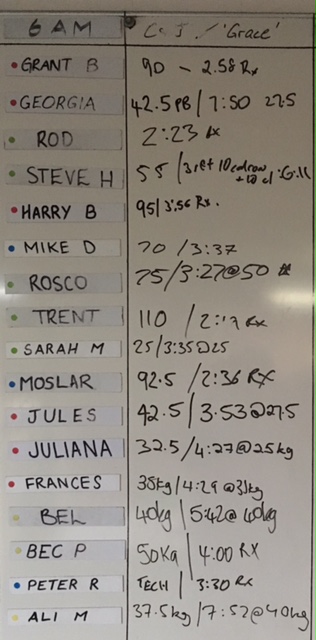 6 AM C&J / 'Grace'
GRANT B 90 - 2.58 Rx
GEORGIA 42.5 PB / 7:50 27.5
ROD 2:23 Rx
STEVE H 55 /
HARRY B 95/3:56 Rx.
MIKE D 70 /3:37
ROSCO 75/3:27@50
TRENT 110 / Rx
SARAH M 25/3:35@25
MOSLAR 92.5 /2:36 RX
JULES 42.5/3.53@27.5
JULIANA 32.5/4:27@25kg
FRANCES 35kg/4:29@31kg
BEL 40kg | 5:42@40kg
BEC P 50Kg / 4:00 RX
PETER R TECH | 3:30 Rx
ALI M 37.5kg/7:52@40kg